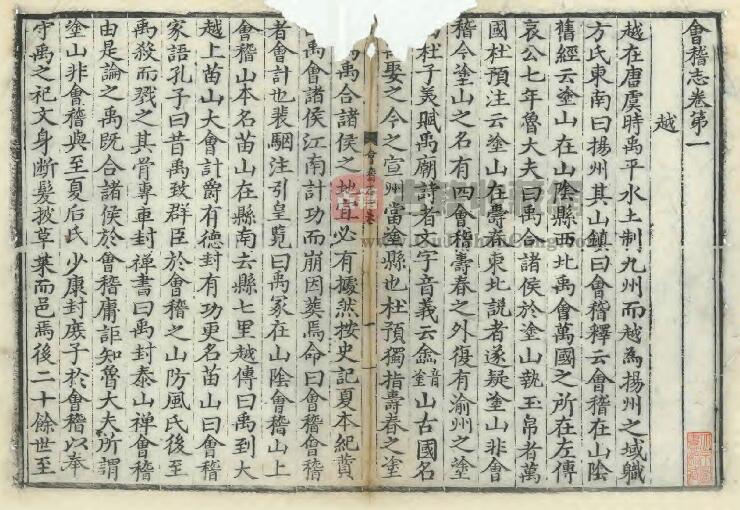 會稽志卷第一
越
越在唐虞時禹平水土制九州而越為揚州之域職
方氏東南曰揚州其山鎮曰會稽釋云會稽在山陰
舊經云塗山在山陰縣西北禹會萬國之所在左傳
哀公七年魯大夫曰禹合諸侯於塗山執玉帛者萬
國杜預注云塗山在壽春東北說者遂疑塗山非會
稽今塗山之名有四會稽壽春之外復有渝州之塗
杜子美賦禹廟詩者文字音義云嵞音塗山古國名
娶之今之宣州當塗縣也杜預獨指壽春之塗
禹合諸侯之地宜必有據然按史記夏本紀賛
禹會諸侯江南計功而崩因葬焉命曰會稽會稽
者會計也裴駰注引皇覽曰禹冢在山陰會稽山上
會稽山本名苗山在縣南去縣七里越傳曰禹到大
越上苗山大會計爵有德封有功更名苗山曰會稽
家語孔子曰昔禹致群臣於會稽之山防風氏後至
禹殺而戮之其骨專車封禅書曰禹封泰山禅會稽
由是論之禹既合諸侯於會稽庸詎知魯大夫所謂
塗山非會稽與至夏后氏少康封庶子於會稽以奉
守禹之祀文身断髮披草萊而邑焉後二十餘世至